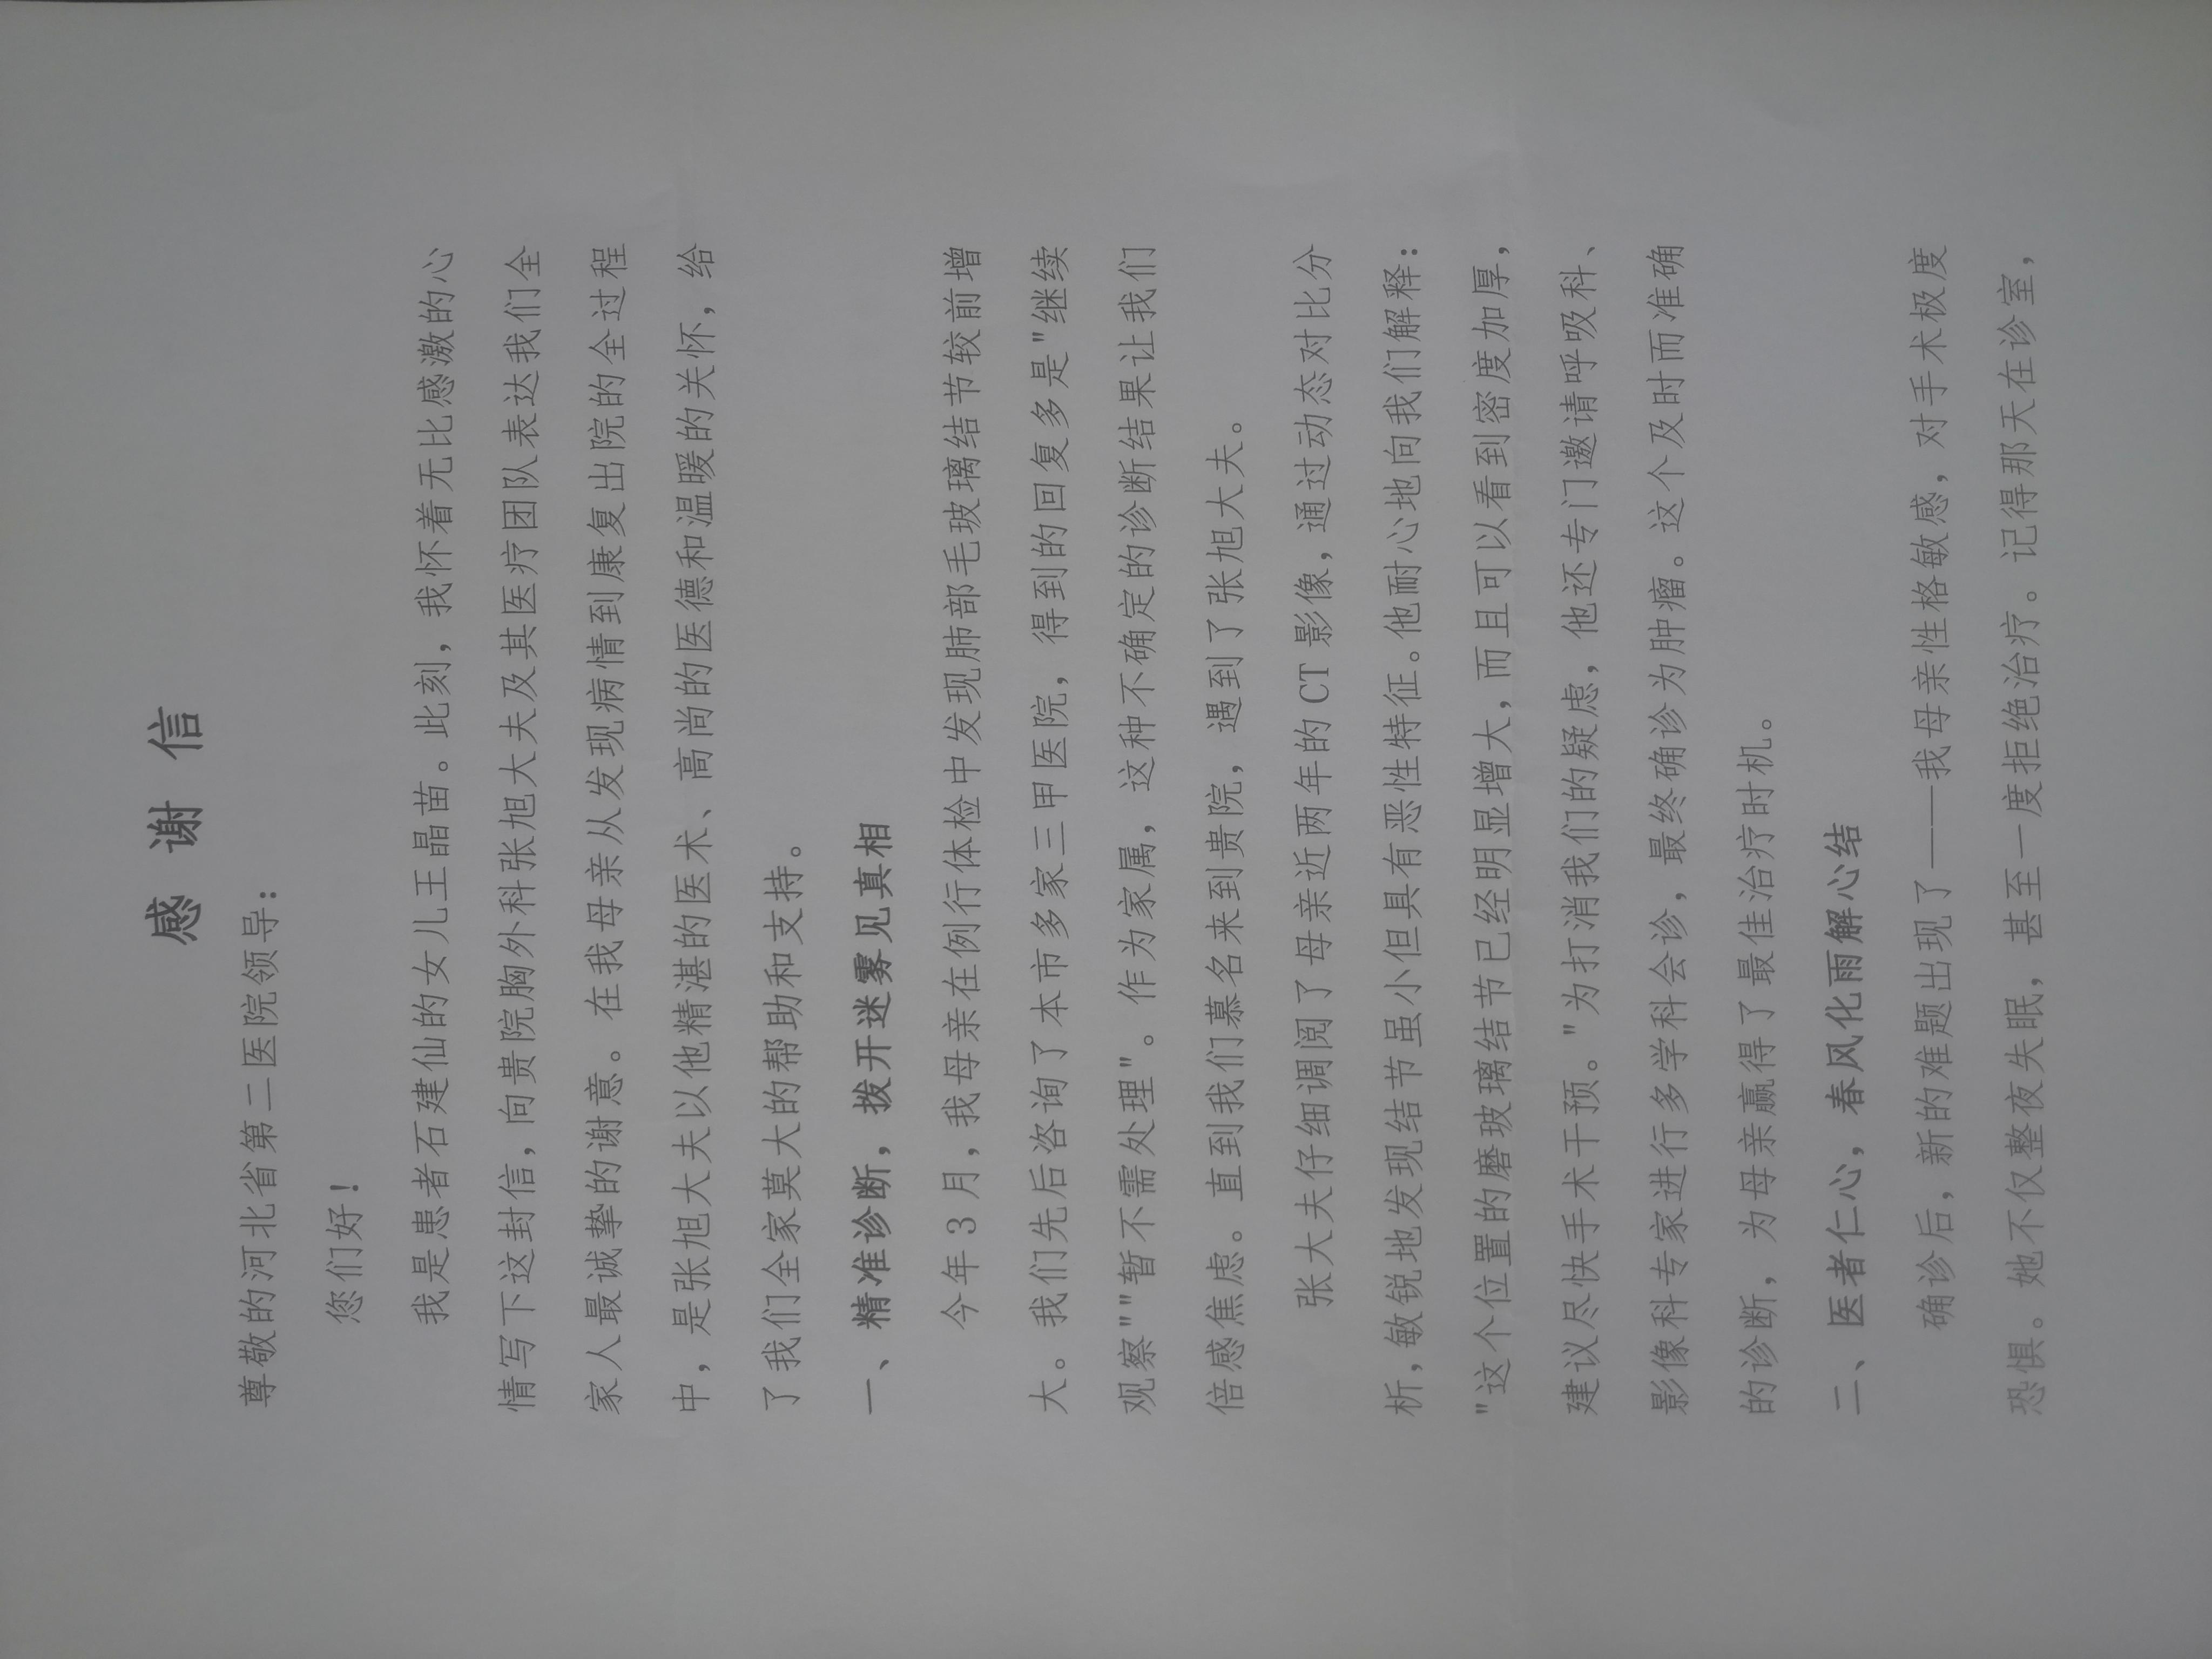 感 谢 信
尊敬的河北省第二医院领导：
您们好！
我是患者石建仙的女儿王晶苗。此刻，我怀着无比感激的心
情写下这封信，向贵院胸外科张旭大夫及其医疗团队表达我们全
家人最诚挚的谢意。在我母亲从发现病情到康复出院的全过程
中，是张旭大夫以他精湛的医术、高尚的医德和温暖的关怀，给
了我们全家莫大的帮助和支持。
一、精准诊断，拨开迷雾见真相
今年 3 月，我母亲在例行体检中发现肺部毛玻璃结节较前增
大。我们先后咨询了本市多家三甲医院，得到的回复多是"继续
观察""暂不需处理"。作为家属，这种不确定的诊断结果让我们
倍感焦虑。直到我们慕名来到贵院，遇到了张旭大夫。
张大夫仔细调阅了母亲近两年的 CT 影像，通过动态对比分
析，敏锐地发现结节虽小但具有恶性特征。他耐心地向我们解释：
"这个位置的磨玻璃结节已经明显增大，而且可以看到密度加厚，
建议尽快手术干预。"为打消我们的疑虑，他还专门邀请呼吸科、
影像科专家进行多学科会诊，最终确诊为肿瘤。这个及时而准确
的诊断，为母亲赢得了最佳治疗时机。
二、医者仁心，春风化雨解心结
确诊后，新的难题出现了——我母亲性格敏感，对手术极度
恐惧。她不仅整夜失眠，甚至一度拒绝治疗。记得那天在诊室，